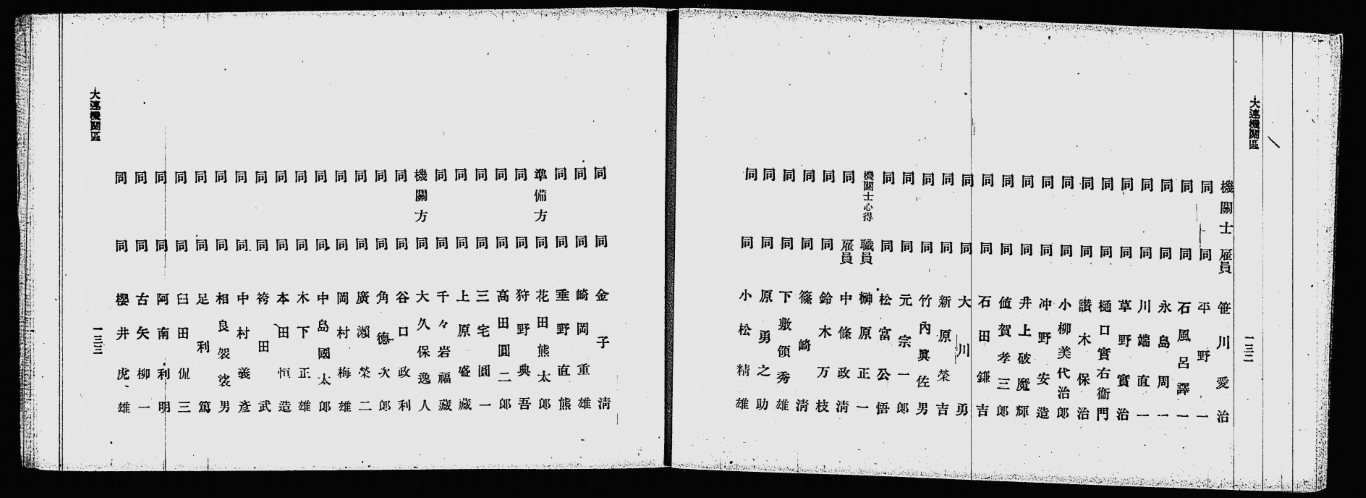 大連機關區
一三二
機關士 雇員 笹川愛治
同 同 平野一
同 同 石風呂譯一
同 同 永島周一
同 同 川端直一
同 同 草野實治
同 同 樋口實右衞門
同 同 讃木保治
同 同 小柳美代治郎
同 同 冲野安造
同 同 井上破魔輝
同 同 値賀孝三郎
同 同 石田鎌吉
同 同 大川勇
同 同 新原榮吉
同 同 竹內眞佐男
同 同 元宗一郎
同 同 松富公悟
機關士心得 職員 榊原正一
同 雇員 中條政淸
同 同 鈴木万枝
同 同 篠崎淸
同 同 下敷領秀雄
同 同 原勇之助
同 同 小松精雄
同 同 金子淸
同 同 崎岡重雄
同 同 垂野直熊
準備方 同 花田熊太郎
同 同 狩野典吾
同 同 高田圓二郎
同 同 三宅圓一
同 同 上原盛藏
同 同 千々岩福藏
機關方 同 大久保逸人
同 同 谷口政利
同 同 角德次郎
同 同 廣瀨榮二
同 同 岡村梅雄
同 同 中島國太郎
同 同 木下正雄
同 同 本田恒造
同 同 袴田武
同 同 中村義彥
同 同 相良袈裟男
同 同 足利篤
同 同 臼田侃三
同 同 阿南利明
同 同 古矢柳一
同 同 櫻井虎雄
大連機關區
一三三